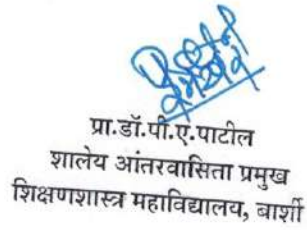 प्रा.डॉ.पी.ए.पाटील
शालेय आंतरवासिता प्रमुख
शिक्षणशास्त्र महाविद्यालय, बार्शी